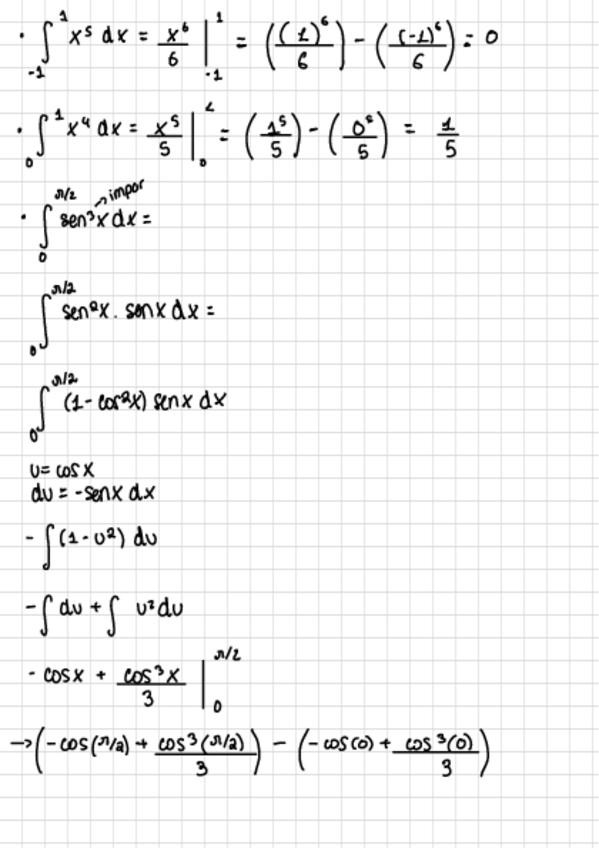 · ∫₋₁¹ x⁵ dx = x⁶/6 |₋₁¹ = ((1)⁶/6) - ((-1)⁶/6) = 0
· ∫₀¹ x⁴ dx = x⁵/5 |₀¹ = (1⁵/5) - (0⁵/5) = 1/5
· ∫₀^(π/2) sen³x dx = → impar
∫₀^(π/2) sen²x . senx dx =
∫₀^(π/2) (1 - cos²x) senx dx
u = cosx
du = -senx dx
- ∫ (1 - u²) du
- ∫ du + ∫ u² du
- cosx + cos³x/3 |₀^(π/2)
→ (-cos(π/2) + cos³(π/2)/3) - (-cos(0) + cos³(0)/3)